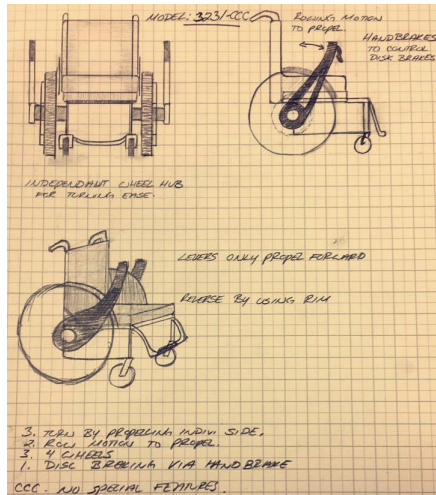 MODEL: 3231-CCC
ROWING MOTION
TO PROPEL.
HANDBRAKES
TO CONTROL
DISK BRAKES
INDEPENDANT WHEEL HUB
FOR TURNING EASE.
LEVERS ONLY PROPEL FORWARD
REVERSE BY USING RIM
3. TURN BY PROPELING INDIVI SIDE.
2. ROW MOTION TO PROPEL.
3. 4 WHEELS
1. DISC BREKING VIA HANDBRAKE
CCC. NO SPECIAL FEATURES.